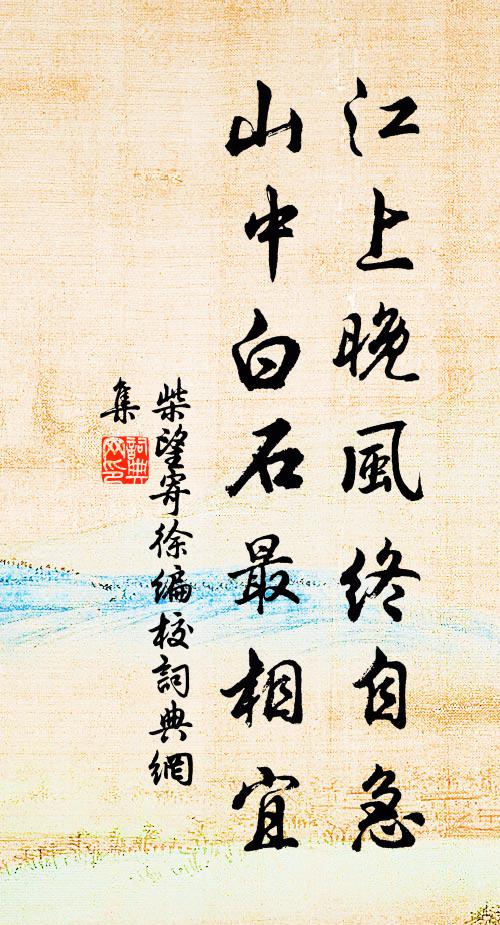 江上晚風終自急
山中白石最相宜
柴望寄徐編校詞典網
集
詞典网印